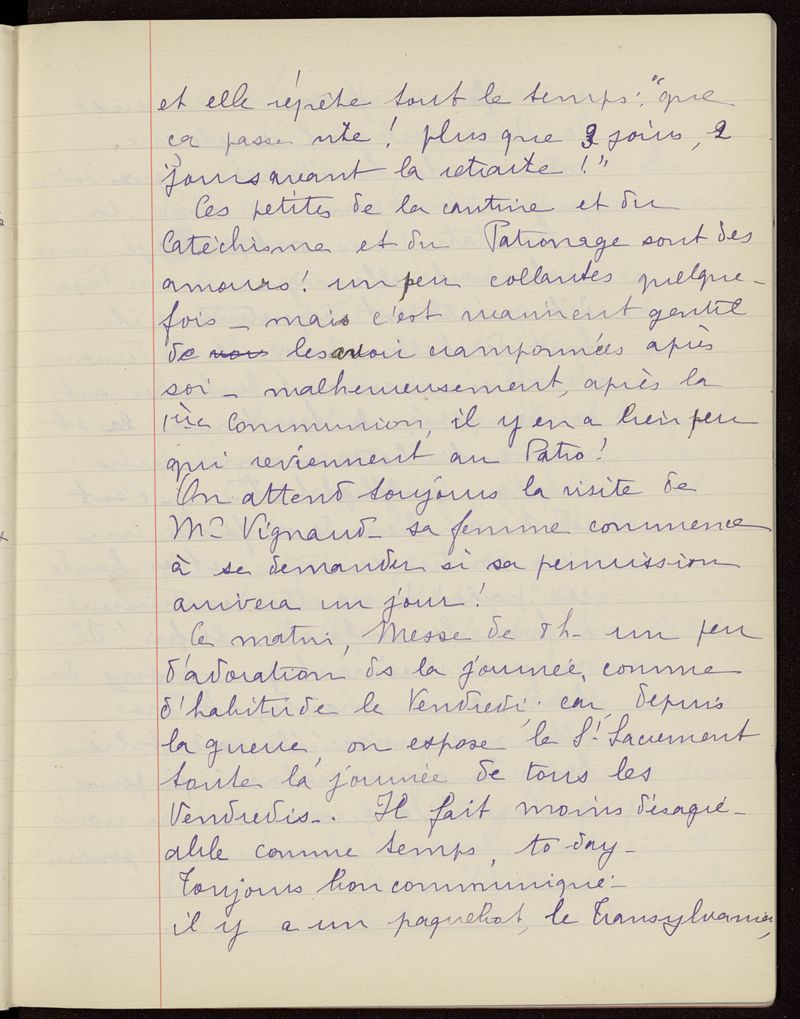 et elle répète tout le temps : "que
ça passe vite ! plus que 3 jours, 2
jours avant la retraite !"
Ces petites de la cantine et du
Catéchisme et du Patronage sont des
amours ! un peu collantes quelque-
fois - mais c'est vraiment gentil
de vous les avoir cramponnées après
soi - malheureusement, après la
1ière Communion, il y en a bien peu
qui reviennent au Patro !
On attend toujours la visite de
Mr Vignaud - sa femme commence
à se demander si sa permission
arrivera un jour !
Ce matin, Messe de 8h - un peu
d'adoration ds la journée, comme
d'habitude le Vendredi, car, depuis
la guerre, on expose le St Sacrement
toute la journée de tous les
Vendredis -. Il fait moins désagré-
able comme temps, to day -
Toujours bon communiqué -
il y a un paquebot, le Transylvania,